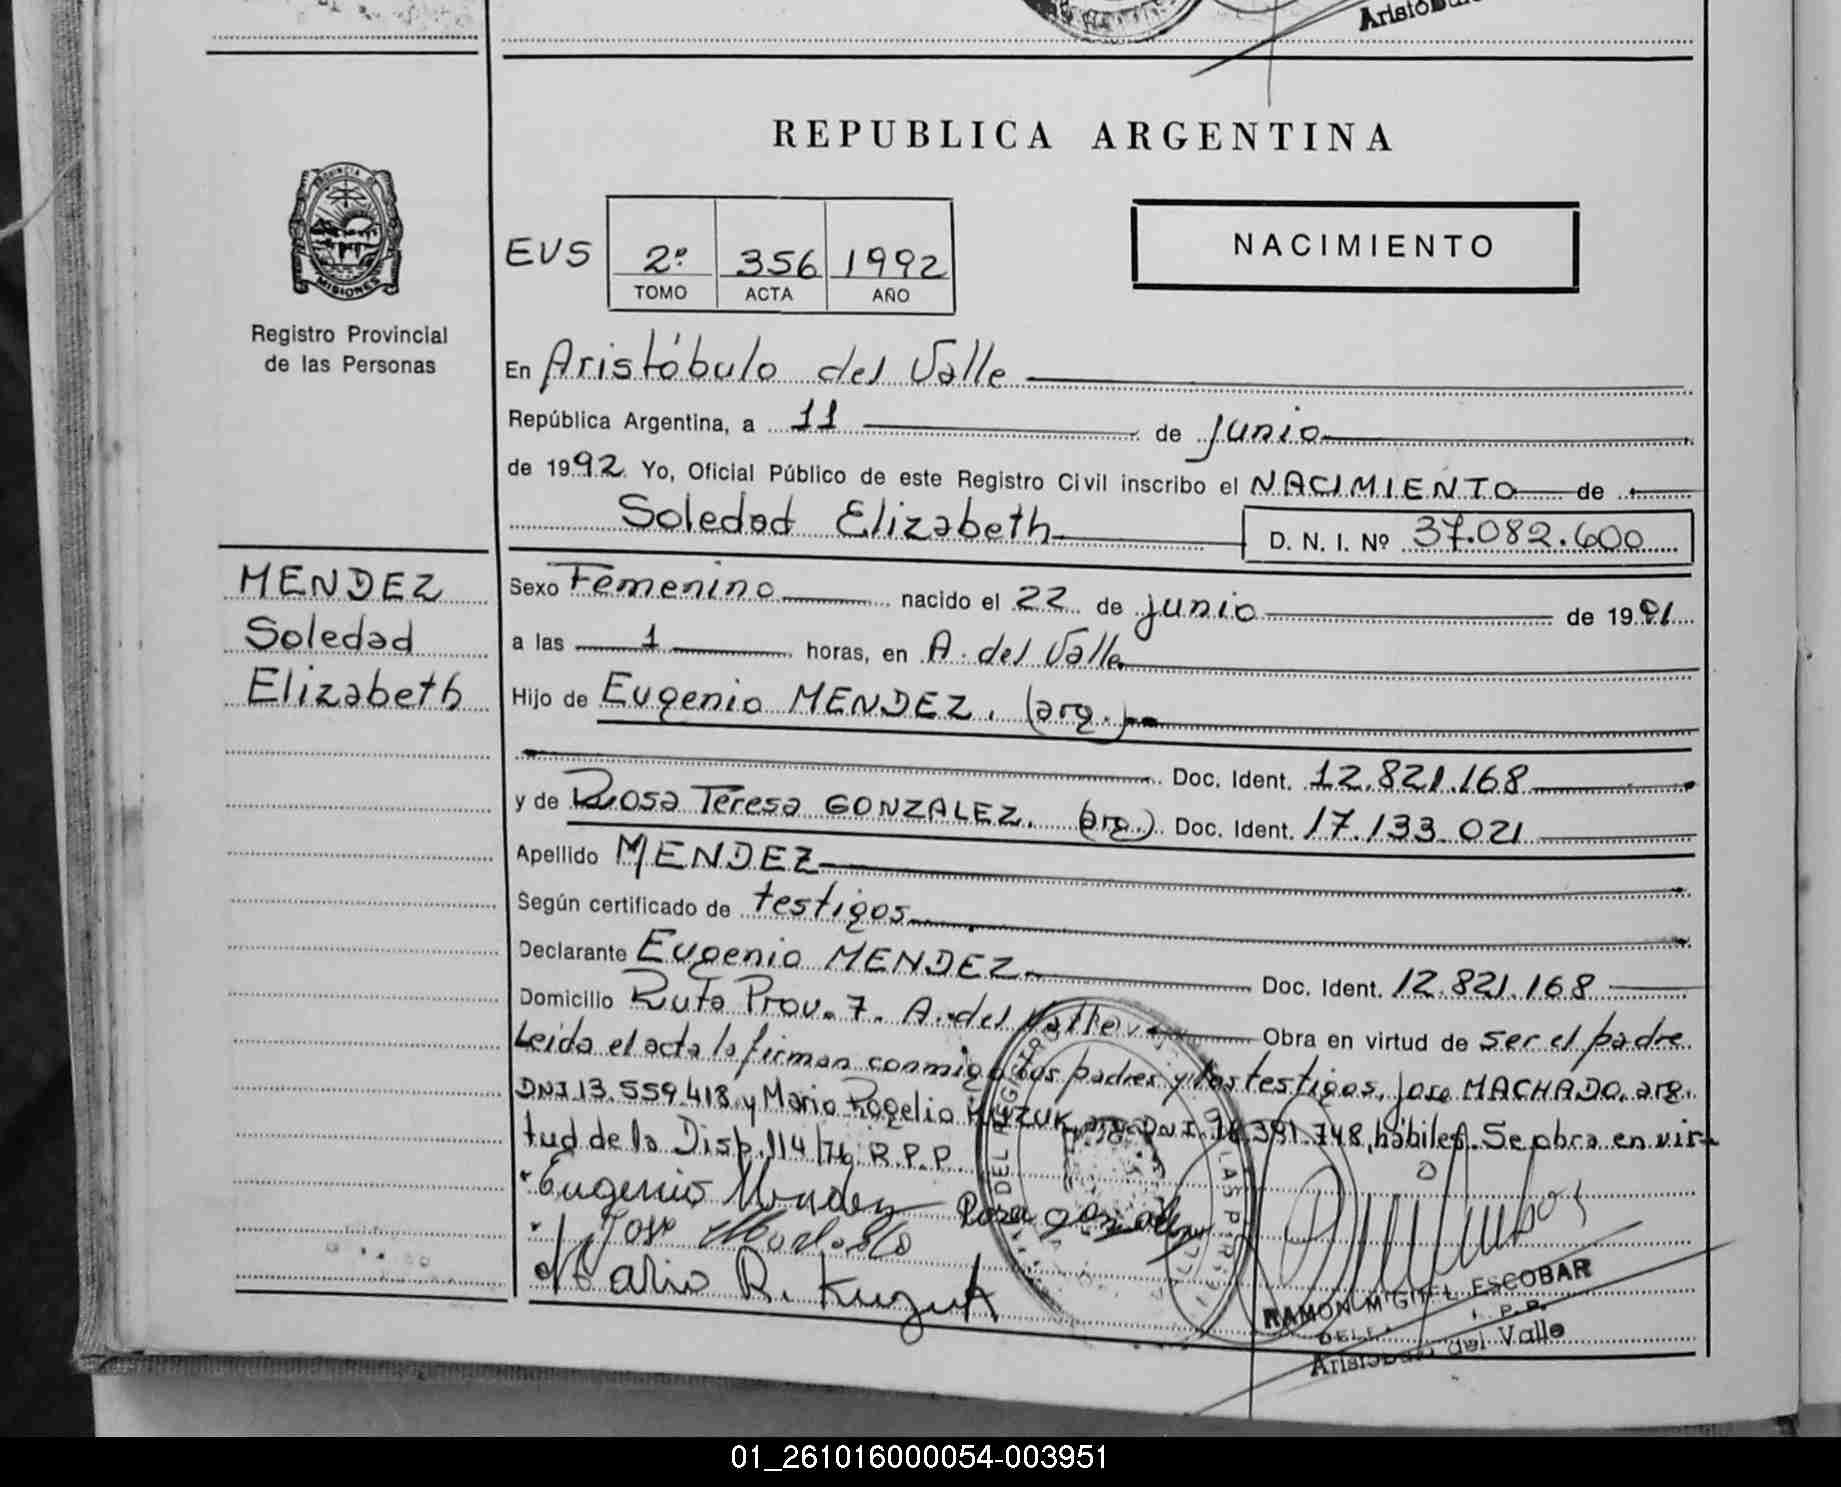 Aristóbulo
REPUBLICA ARGENTINA
PROVINCIA DE
MISIONES
Registro Provincial
de las Personas
EVS 2º 356 1992
TOMO ACTA AÑO
NACIMIENTO
En Aristóbulo del Valle
República Argentina, a 11 de junio
de 1992 Yo, Oficial Público de este Registro Civil inscribo el NACIMIENTO de
Soledad Elizabeth D. N. I. Nº 37.082.600
MENDEZ
Soledad
Elizabeth
Sexo Femenino nacido el 22 de junio de 1991
a las 1 horas, en A. del Valle
Hijo de Eugenio MENDEZ. (arg.)
Doc. Ident. 12.821.168
y de Rosa Teresa GONZALEZ. (arg.) Doc. Ident. 17.133.021
Apellido MENDEZ
Según certificado de testigos
Declarante Eugenio MENDEZ Doc. Ident. 12.821.168
Domicilio Ruta Prov. 7. A. del Valle Obra en virtud de ser el padre
Leida el acta la firman conmigo los padres y los testigos, Jose MACHADO, arg.
DNI 13.559.418 y Mario Rogelio KUZUK, arg. DNI. 391.748, hábiles. Se obra en vir-
tud de la Disp. 114/76 R.P.P.
Eugenio Mendez Rosa Gonzalez
Jose Machado
Mario R. Kuzuk
RAMON MIGUEL ESCOBAR
R.P.P.
Aristóbulo del Valle
01_261016000054-003951